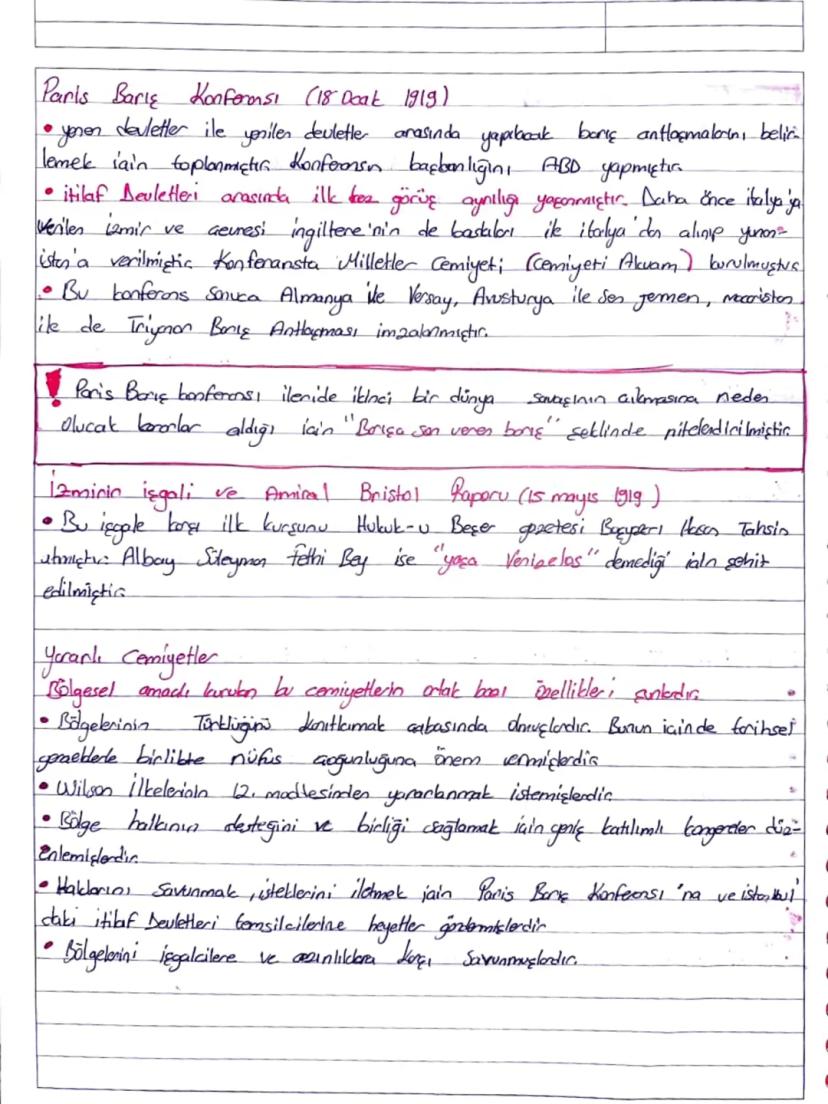 Paris Barış Konferansı (18 Ocak 1919)
• yenen devletler ile yenilen devletler arasında yapılacak barış antlaşmalarını belir-
lemek için toplanmıştır. Konferansın başkanlığını ABD yapmıştır.
• itilaf Devletleri arasında ilk kez görüş ayrılığı yaşanmıştır. Daha önce italya'ya
verilen izmir ve çevresi ingiltere'nin de baskıları ile italya'dan alınıp yunan-
istan'a verilmiştir. Konferansta Milletler Cemiyeti (Cemiyeti Akvam) kurulmuştur
• Bu konferans sonuca Almanya ile Versay, Avusturya ile Sen jermen, macaristan
ile de Triyanon Barış Antlaşması imzalanmıştır.
! Paris Barış konferansı ileride ikinci bir dünya savaşının çıkmasına neden
olucak kararlar aldığı için "Barışa son veren barış" şeklinde nitelendirilmiştir.
İzmirin işgali ve Amiral Bristol Raporu (15 mayıs 1919)
• Bu işgale karşı ilk kurşunu Hukuk-u Beşer gazetesi Başyazarı Hasan Tahsin
atmıştır. Albay Süleyman Fethi Bey ise "yaşa Venizelos" demediği için şehit
edilmiştir.
Yararlı Cemiyetler
Bölgesel amaçlı kurulan bu cemiyetlerin ortak bazı özellikleri şunlardır.
• Bölgelerinin Türklüğünü kanıtlamak çabasında olmuşlardır. Bunun içinde tarihsel
gerçeklerle birlikte nüfus çoğunluğuna önem vermişlerdir
• Wilson ilkelerinin 12. maddesinden yararlanmak istemişlerdir.
• Bölge halkının desteğini ve birliği sağlamak için geniş katılımlı kongreler düz-
enlemişlerdir.
• Haklarını savunmak, isteklerini iletmek için Paris Barış Konferansı'na ve istanbul'
daki itilaf Devletleri temsilcilerine heyetler göndermişlerdir
• Bölgelerini işgalcilere ve azınlıklara karşı savunmuşlardır.